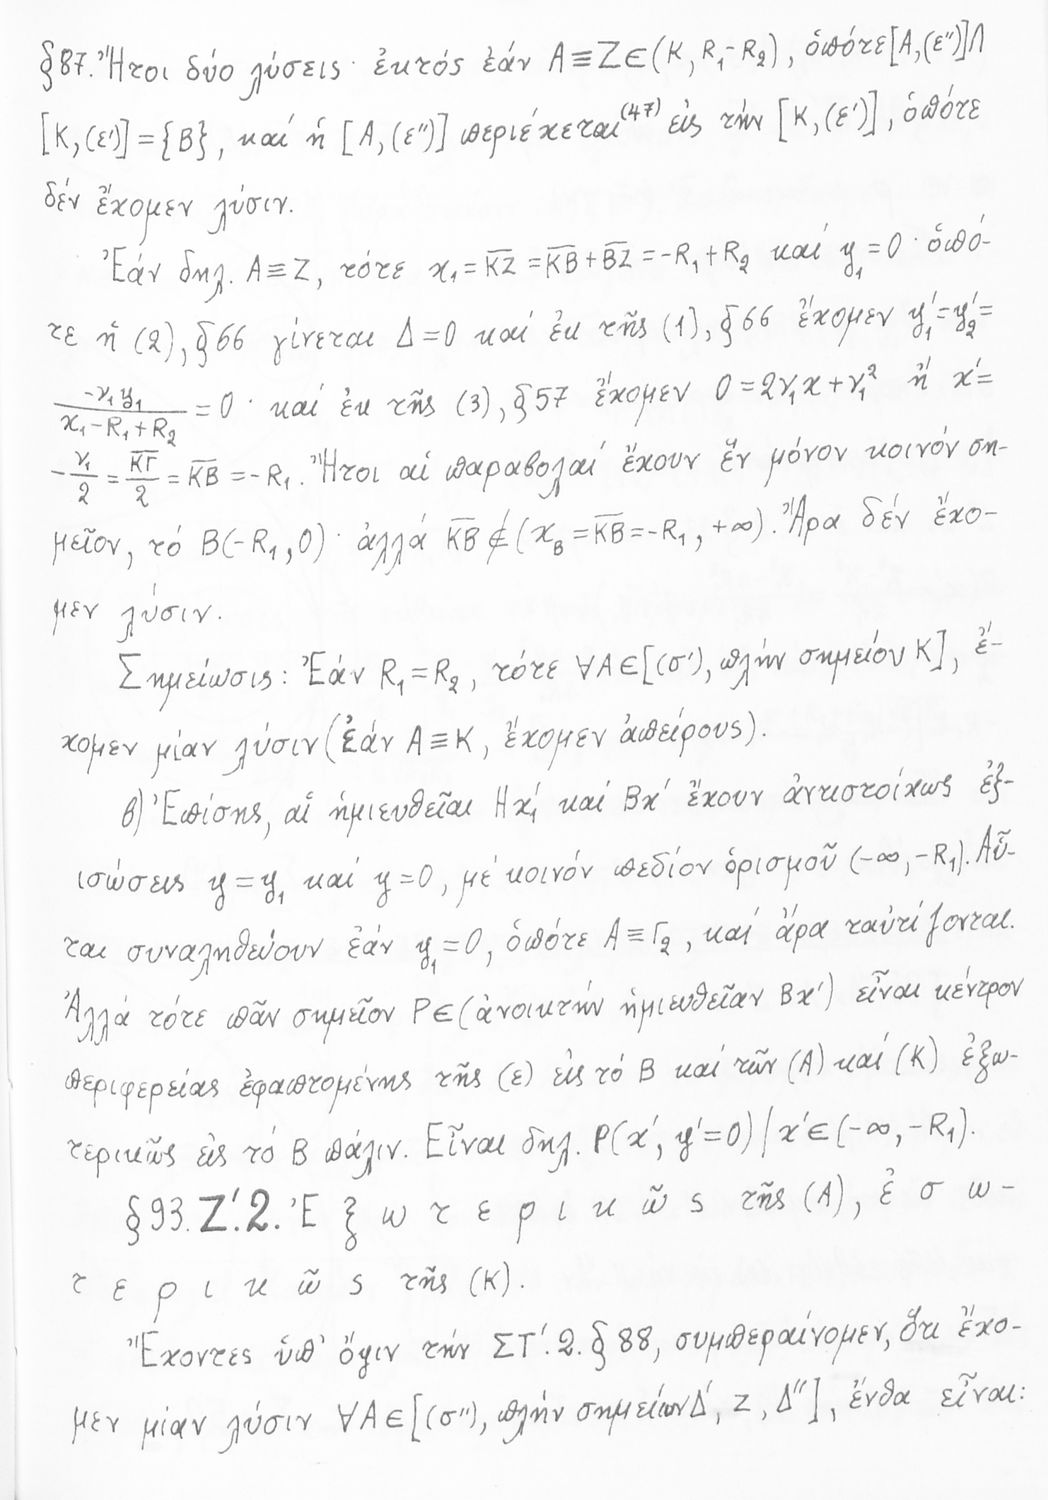 §87. Ἤτοι δύο λύσεις· ἐκτός ἐάν Α≡Ζ∈(Κ, R₁-R₂), ὁπότε [Α,(ε″)]∩
[Κ,(ε′)]={Β}, καί ἡ [Α,(ε″)] περιέχεται⁽⁴⁷⁾ εἰς τήν [Κ,(ε′)], ὁπότε
δέν ἔχομεν λύσιν.
Ἐάν δηλ. Α≡Ζ, τότε x₁=K̅Z̅=K̅B̅+B̅Z̅=-R₁+R₂ καί y₁=0· ὁπό-
τε ἡ (2), §66 γίνεται Δ=0 καί ἐκ τῆς (1), §66 ἔχομεν y₁′=y₂′=
-ν₁y₁/(x₁-R₁+R₂) =0· καί ἐκ τῆς (3), §57 ἔχομεν 0=2ν₁x+ν₁² ἤ x′=
-ν₁/2 = K̅Γ̅/2 = K̅B̅ =-R₁. Ἤτοι αἱ παραβολαί ἔχουν ἕν μόνον κοινόν ση-
μεῖον, τό Β(-R₁,0)· ἀλλά K̅B̅∉(x_B=K̅B̅=-R₁,+∞). Ἄρα δέν ἔχο-
μεν λύσιν.
Σημείωσις: Ἐάν R₁=R₂, τότε ∀Α∈[(σ′), πλήν σημείου Κ], ἔ-
χομεν μίαν λύσιν (Ἐάν Α≡Κ, ἔχομεν ἀπείρους).
β) Ἐπίσης, αἱ ἡμιευθεῖαι Ηx₁′ καί Βx′ ἔχουν ἀντιστοίχως ἐξ-
ισώσεις y=y₁ καί y=0, μέ κοινόν πεδίον ὁρισμοῦ (-∞,-R₁). Αὗ-
ται συναληθεύουν ἐάν y₁=0, ὁπότε Α≡Γ₂, καί ἄρα ταὐτίζονται.
Ἀλλά τότε πᾶν σημεῖον Ρ∈(ἀνοικτήν ἡμιευθεῖαν Βx′) εἶναι κέντρον
περιφερείας ἐφαπτομένης τῆς (ε) εἰς τό Β καί τῶν (Α) καί (Κ) ἐξω-
τερικῶς εἰς τό Β πάλιν. Εἶναι δηλ. Ρ(x′, y′=0)/x′∈(-∞,-R₁).
§93. Ζ′.2. Ἐ ξ ω τ ε ρ ι κ ῶ ς τῆς (Α), ἐ σ ω -
τ ε ρ ι κ ῶ ς τῆς (Κ).
Ἔχοντες ὑπ' ὄψιν τήν ΣΤ′.2. §88, συμπεραίνομεν, ὅτι ἔχο-
μεν μίαν λύσιν ∀Α∈[(σ″), πλήν σημείων Δ′, Ζ, Δ″], ἔνθα εἶναι: